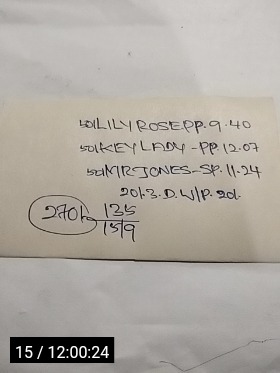 50/LILY ROSE.PP.9.40
50/KEY LADY-PP.12.07
50/MR JONES-SP.11.24
20/.3.D.W/P.20/.
270/. 135
15/9
15 / 12:00:24